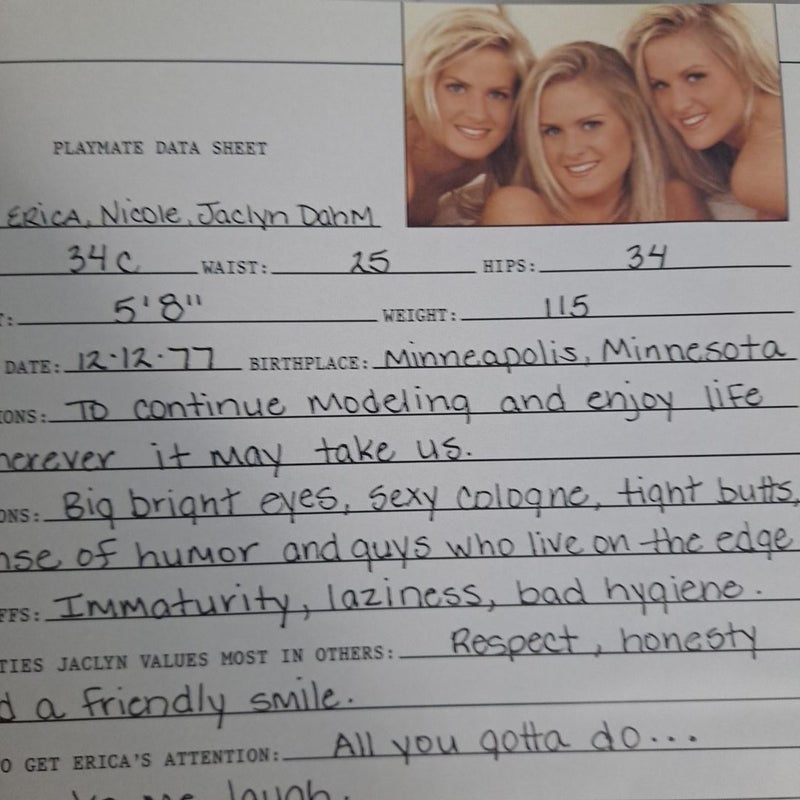 PLAYMATE DATA SHEET
ERICA, Nicole, Jaclyn Dahm
34C WAIST: 25 HIPS: 34
5'8" WEIGHT: 115
DATE: 12·12·77 BIRTHPLACE: Minneapolis, Minnesota
IONS: To continue modeling and enjoy life
herever it may take us.
ONS: Big bright eyes, sexy cologne, tight butts,
nse of humor and guys who live on the edge
FFS: Immaturity, laziness, bad hygiene.
TIES JACLYN VALUES MOST IN OTHERS: Respect, honesty
d a friendly smile.
O GET ERICA'S ATTENTION: All you gotta do...
me laugh.